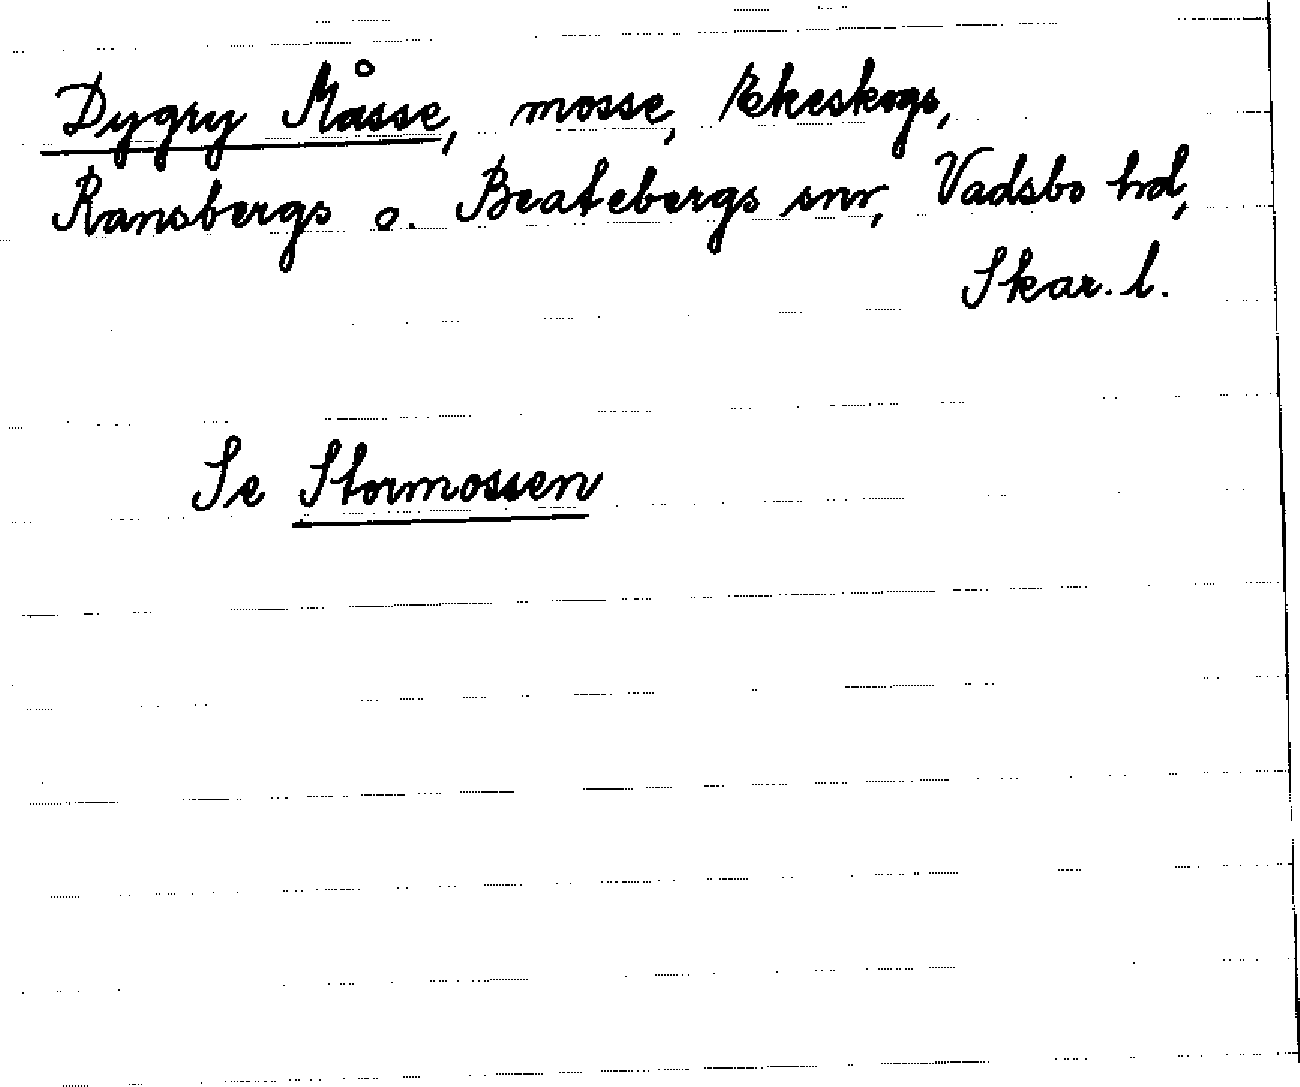 Dygry Måsse, mosse, Ekeskogs,
Ransbergs o. Beatebergs snr, Vadsbo hd,
Skar. l.
Se Stormossen